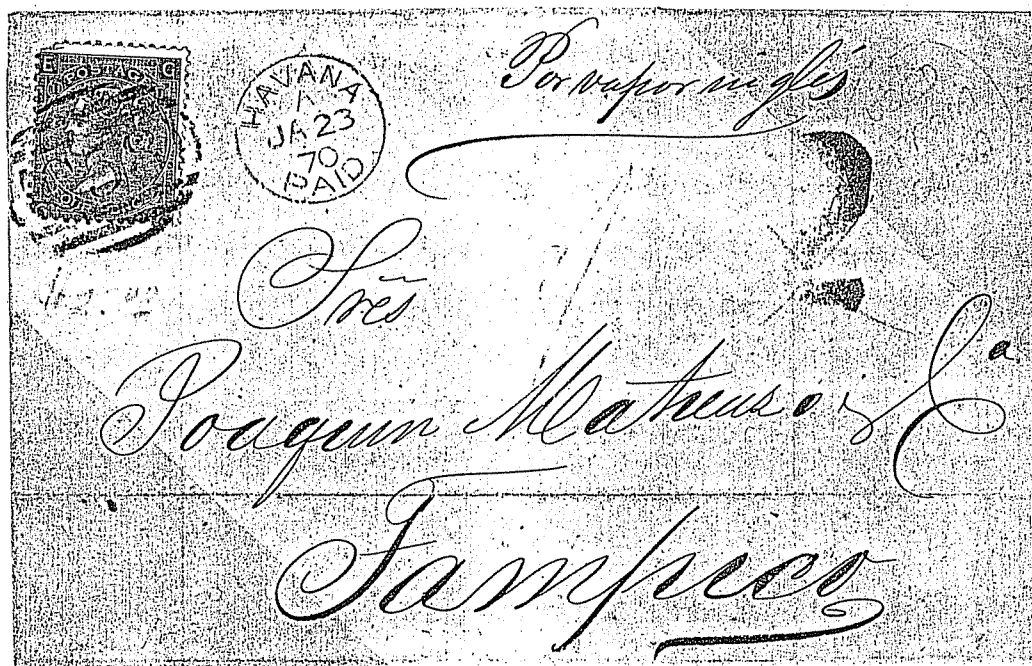 E G
POSTAGE
HAVANA
A
JA 23
70
PAID
Por vapor inglés
Srẽs
Joaquin Matheuso y Cª
Tampico